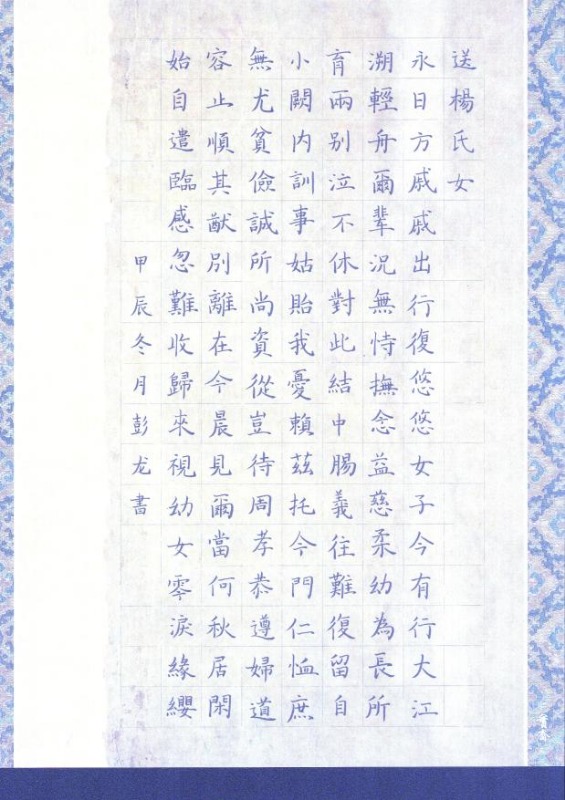 送楊氏女
永日方戚戚出行復悠悠女子今有行大江
溯輕舟爾輩況無恃撫念益慈柔幼為長所
育兩別泣不休對此結中腸義往難復留自
小闕內訓事姑貽我憂賴茲托今門仁恤庶
無尤貧儉誠所尚資從豈待周孝恭遵婦道
容止順其猷別離在今晨見爾當何秋居閑
始自遣臨感忽難收歸來視幼女零淚緣纓
甲辰冬月彭龙書